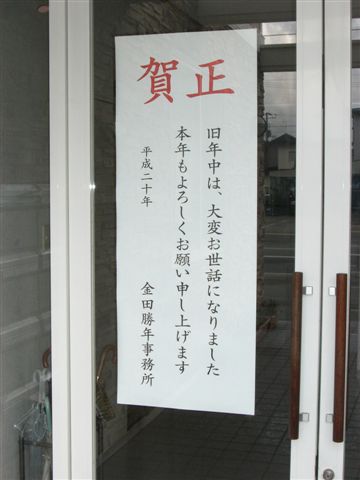 賀正
旧年中は、大変お世話になりました
本年もよろしくお願い申し上げます
平成二十年
金田勝年事務所